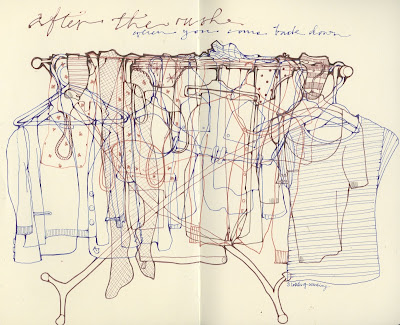 after the rush
when you come back down